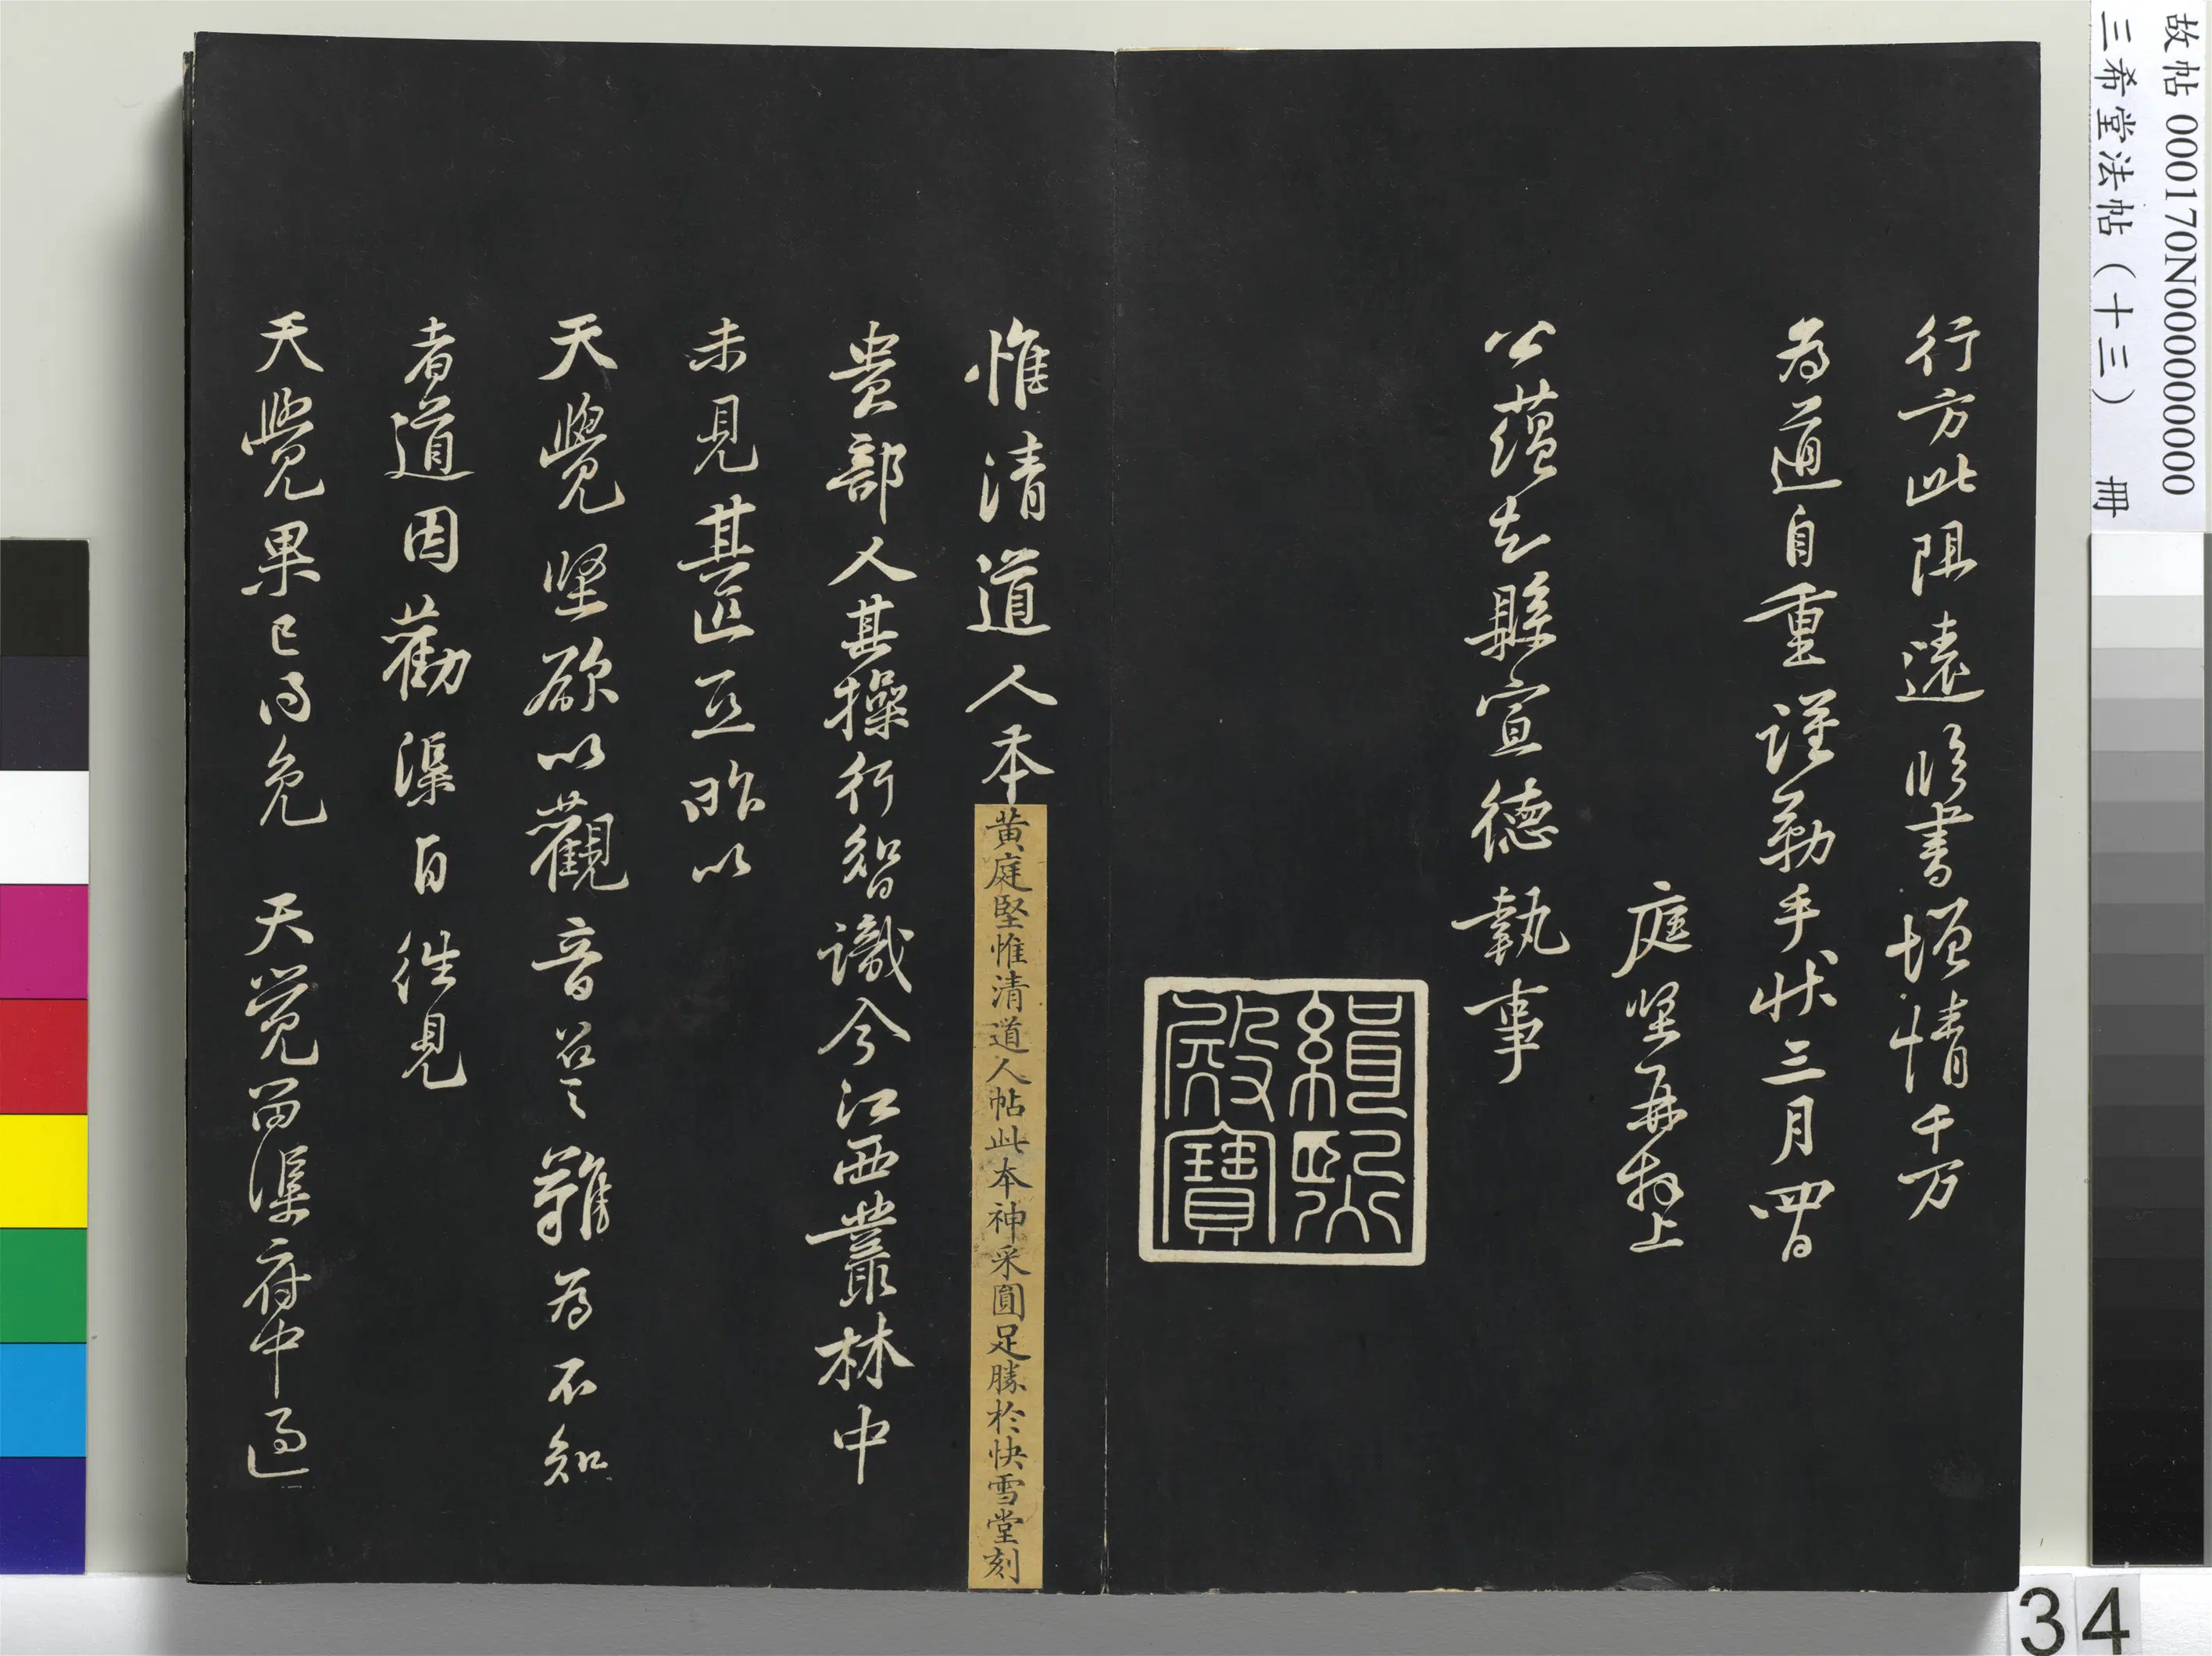 故帖 000170N000000000
三希堂法帖（十三） 冊
行方此阻遠臨書增情千万
為道自重謹勒手狀三月四日
庭堅再拜上
公蘊知縣宣德執事
緝熙殿寶
惟清道人本
黃庭堅惟清道人帖此本神采圓足勝於快雪堂刻
貴部人其操行智識今江西叢林中
未見其匹亞昨以
天覺堅欲以觀音召之難為不知
者道因勸渠自往見
天覺果已得免 天覺留渠府中過
34